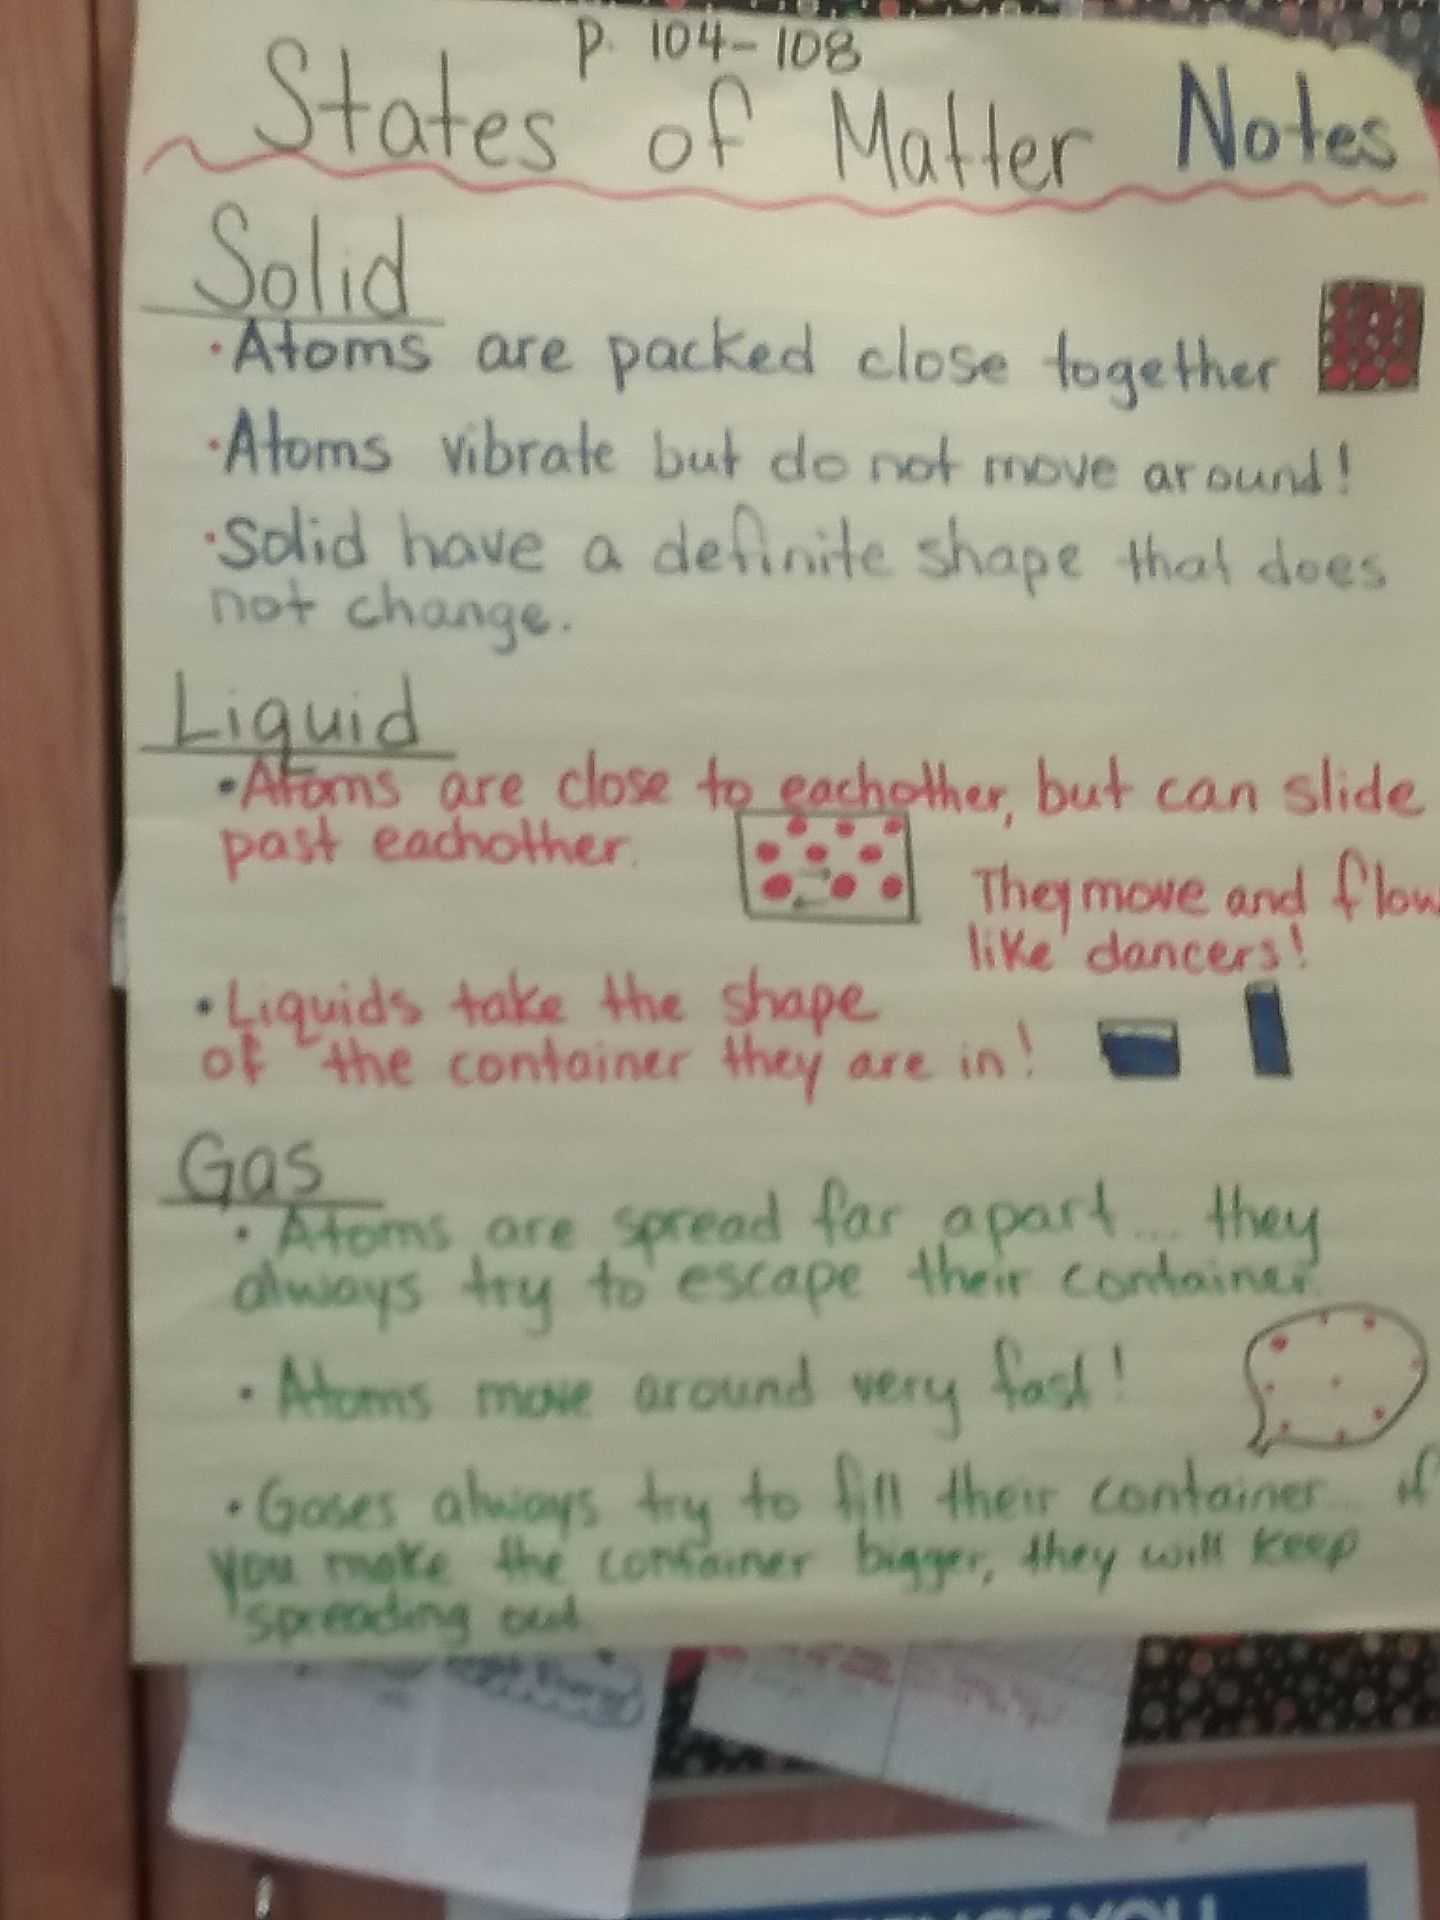 p. 104-108
States of Matter Notes
Solid
·Atoms are packed close together
·Atoms vibrate but do not move around!
·Solid have a definite shape that does
not change.
Liquid
·Atoms are close to eachother, but can slide
past eachother.
They move and flow
like dancers!
·Liquids take the shape
of the container they are in!
Gas
· Atoms are spread far apart... they
always try to escape their container.
· Atoms move around very fast!
· Gases always try to fill their container... if
you make the container bigger, they will keep
spreading out.
YOU